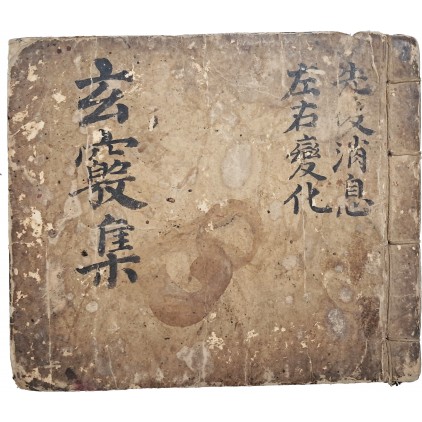 先後消息
左右變化
玄竅集